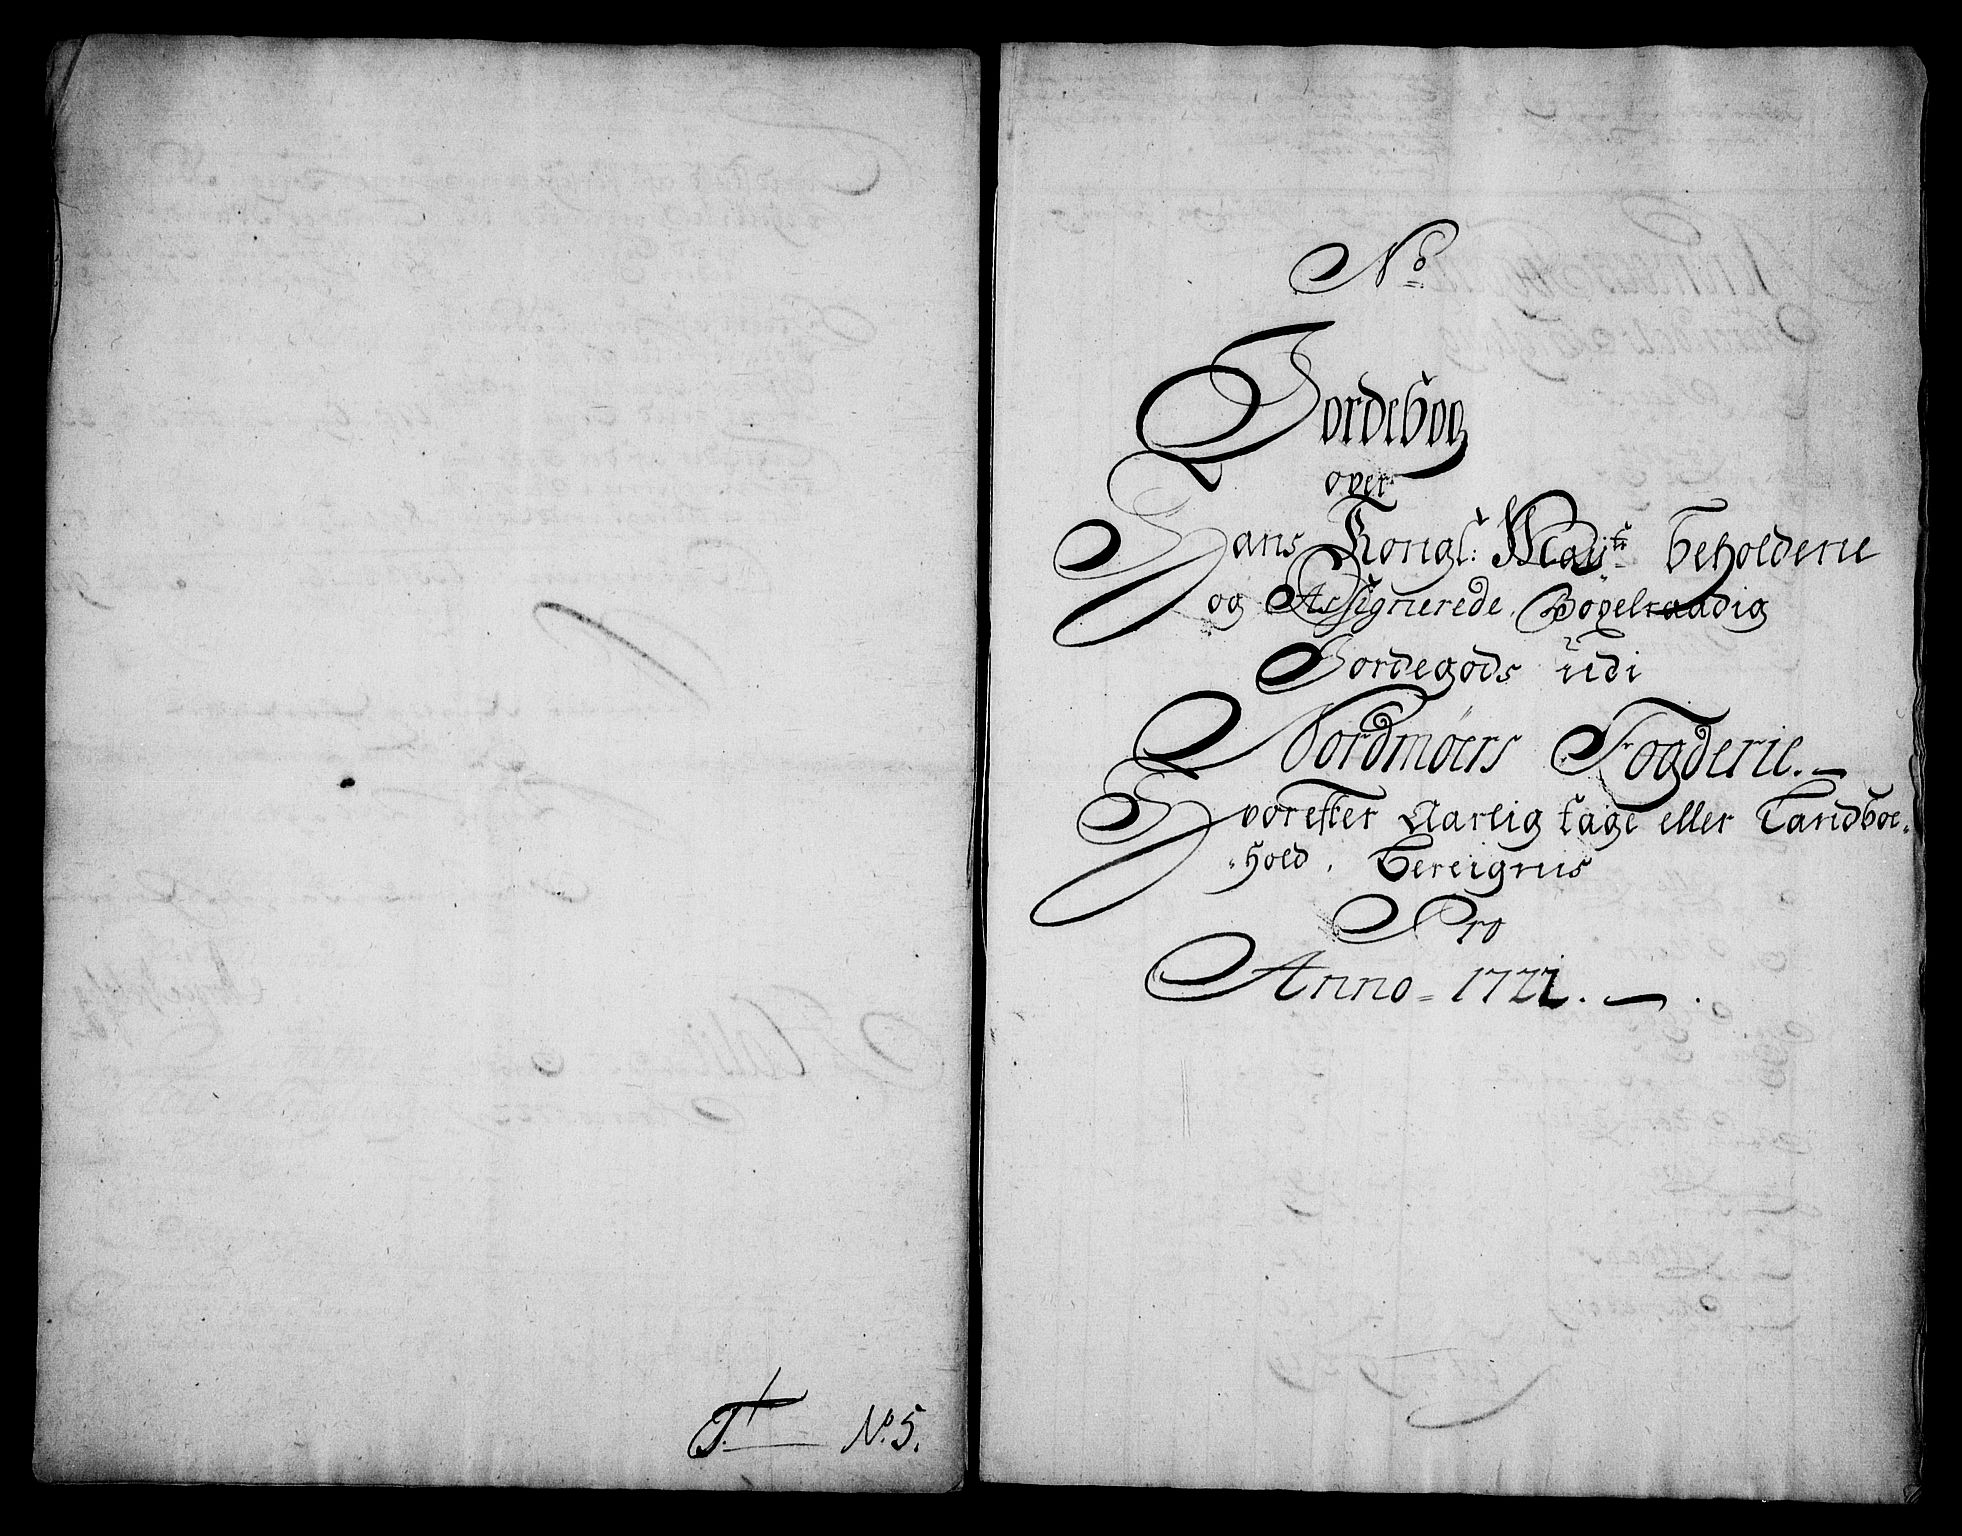 T. N:o 5.
N:o
Jordebog
over
Hans Kongl: Mayts beholdene
og Assignerede, Bøgelraadig
Jordegods udi
Nordmøers Fogderie. —
Hvorefter Aarlig tage eller Landboe-
-hold, bereignis
Pro
Anno = 1721. — .